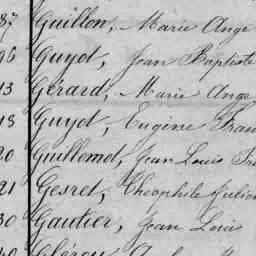 87 Guillon, Marie Ange
96 Guyot, Jean Baptiste
13 Gérard, Marie Ange
18 Guyot, Eugène Fran
20 Guillemot, Jean Louis Fra
21 Gesret, Théophile Julien
30 Gautier, Jean Louis